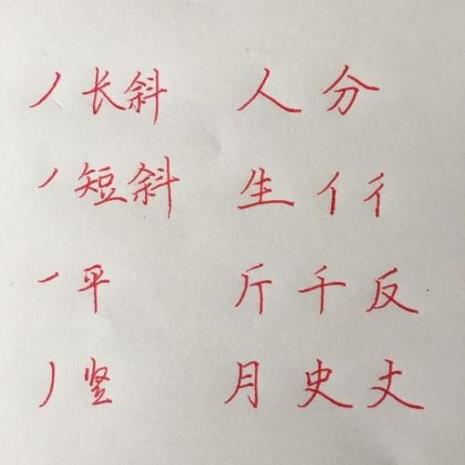 丿长斜 人分
丿短斜 生亻彳
㇒平 斤千反
丿竖 月史丈